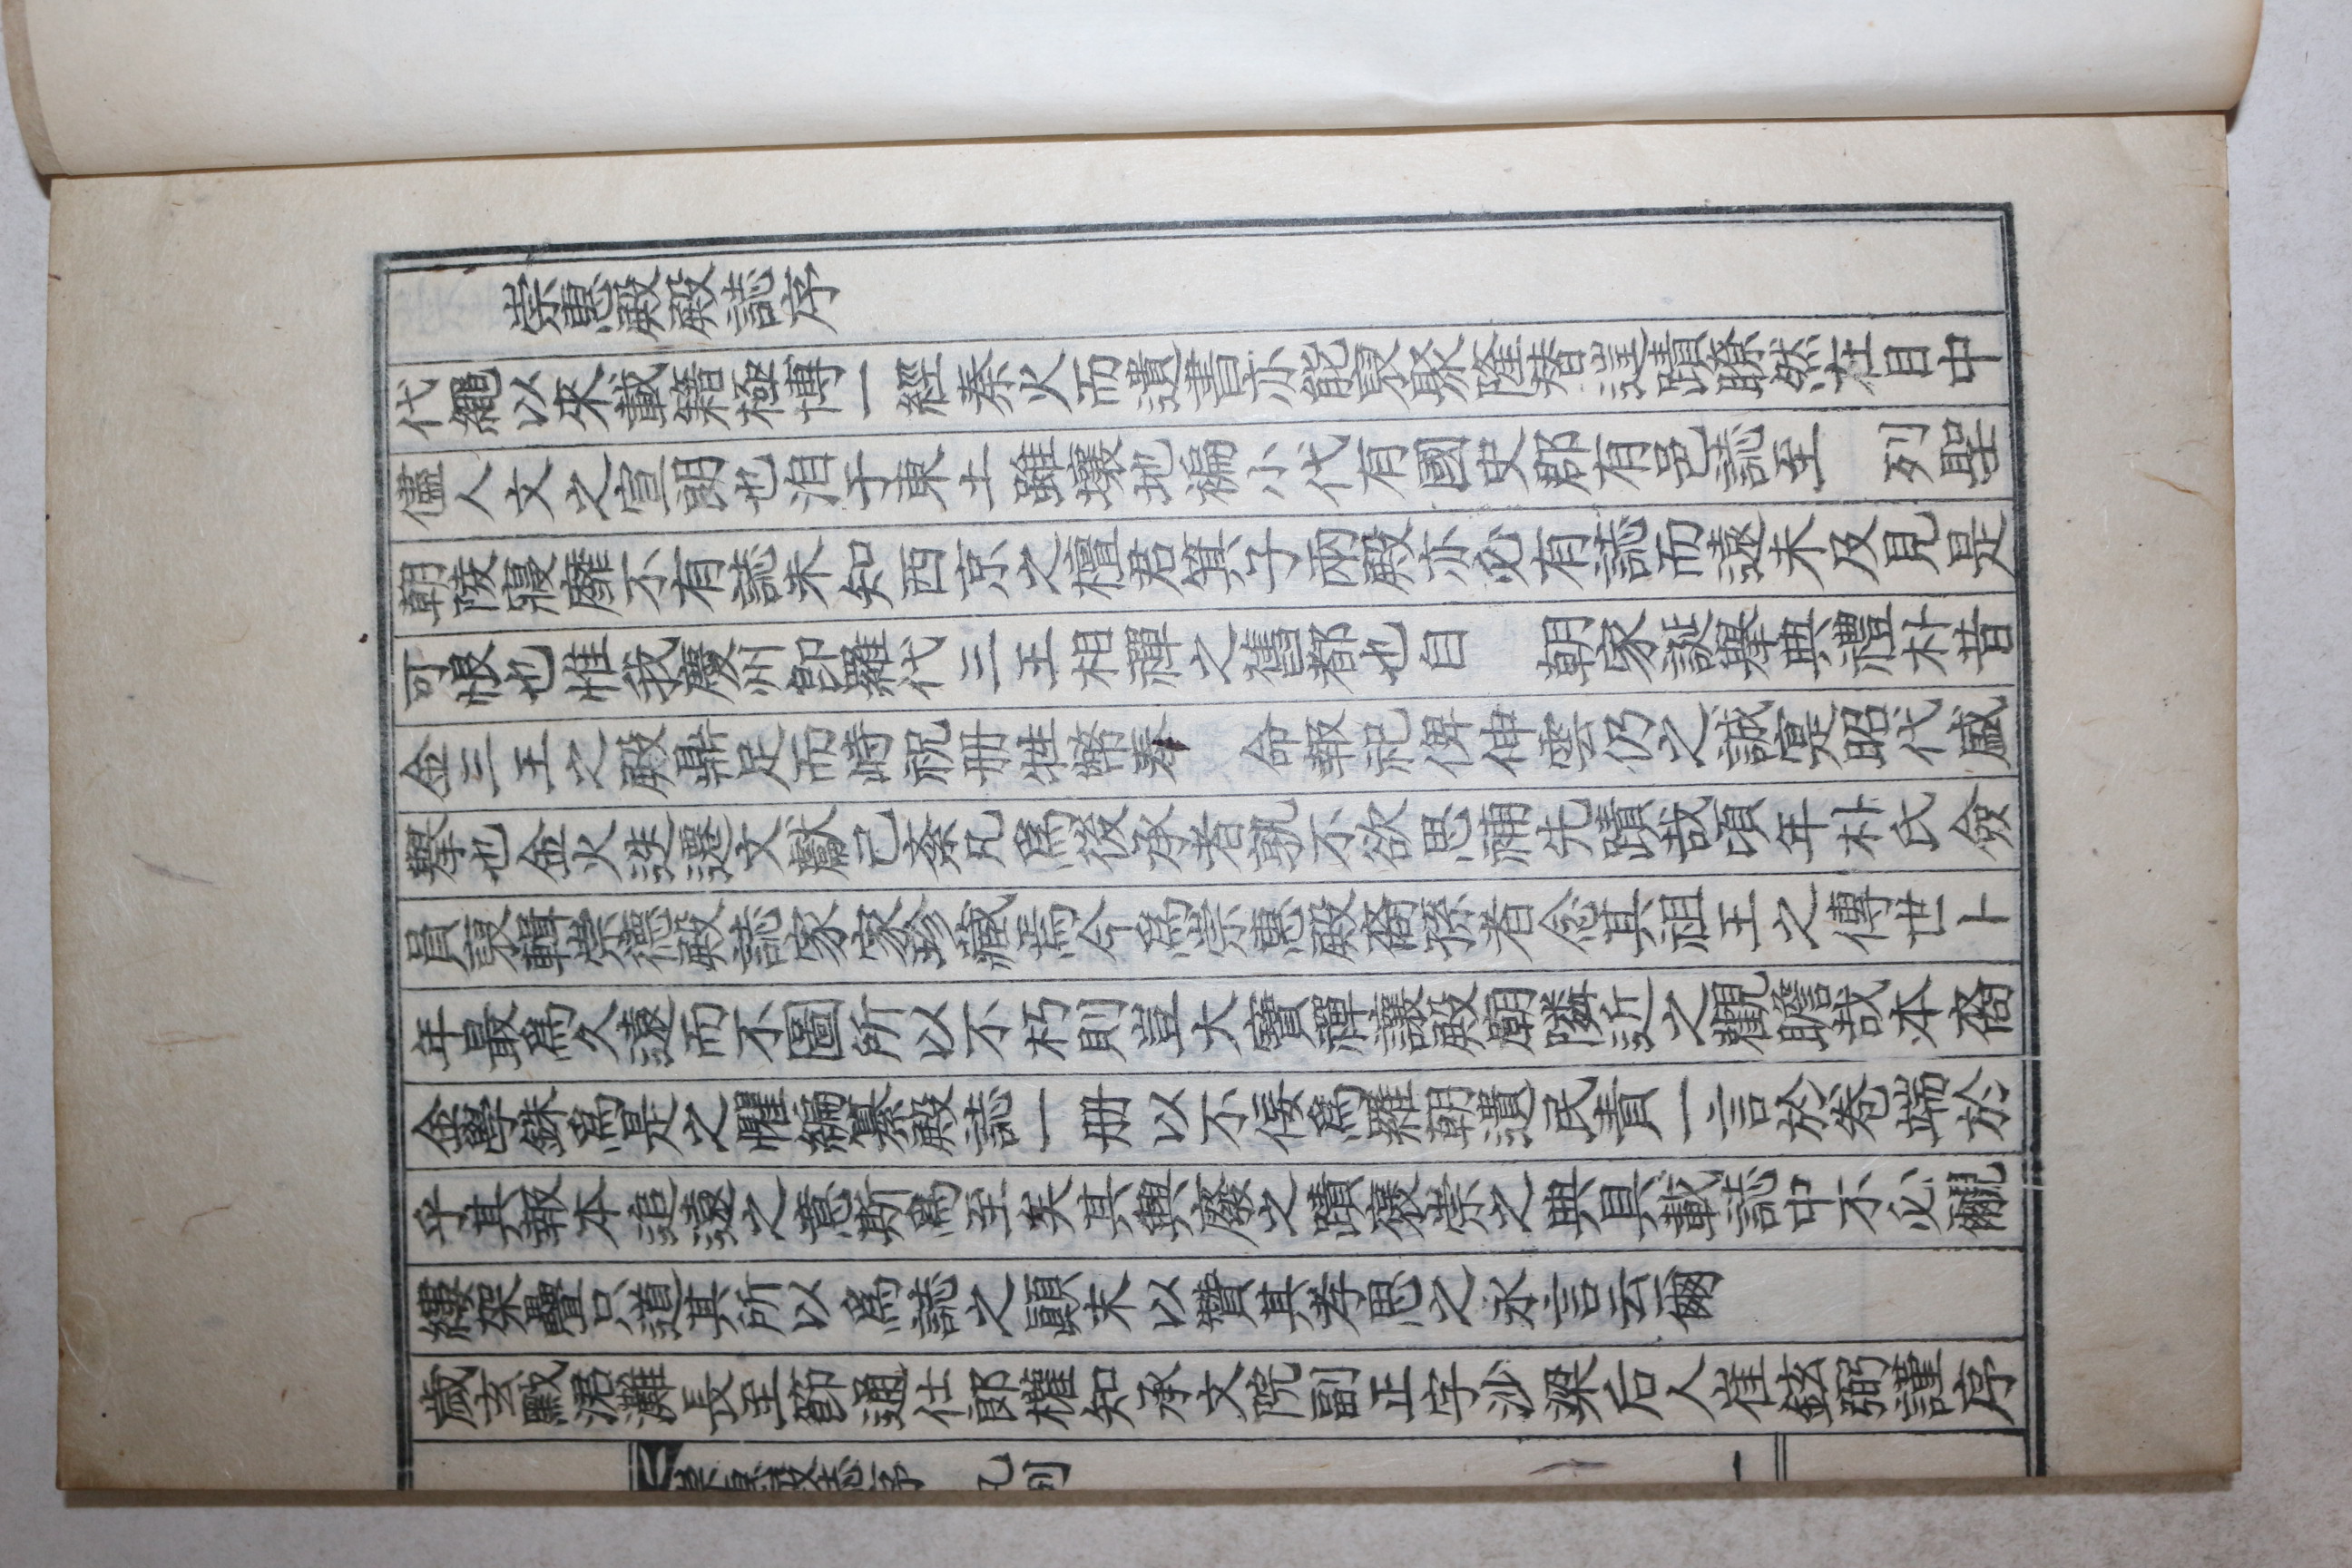 崇惠殿殿誌序
代繩以來載籍極博一經秦火而遺書亦能裒聚隆替逞蹟瞭然在目中
儘人文之宣朗也洎于東土雖壤地褊小代有國史郡有邑誌至 列聖
朝陵寢靡不有誌未知西京之檀君箕子兩殿亦必有誌而遠未及見是
可恨也惟我慶州卽羅代三王相禪之舊都也自 朝家誕舉典禮朴昔
金三王之殿鼎足而峙祝册牲幣奉 命報祀俾伸雲仍之誠寔昭代盛
擧也金火迭遷文獻已紊凡爲後承者孰不欲思補先蹟哉頃年朴氏僉
員裒輯崇德殿誌家家珍藏焉今爲崇惠殿裔孫者念其祖王之傳世卜
年最爲久遠而不圖所以不朽則豈大寶禪讓殿廟隣近之觀瞻哉本裔
金學銖爲是之懼編纂殿誌一册以不佞爲羅朝遺民責一言於卷端於
乎其報本追遠之意斯爲至矣其興廢之蹟褒崇之典具載誌中不必覼
縷架疊只道其所以爲誌之顚末以贊其孝思之永言云爾
歲玄黓涒灘長至節通仕郞權知承文院副正字沙梁后人崔鉉弼謹序
崇惠殿誌序 凡例 一